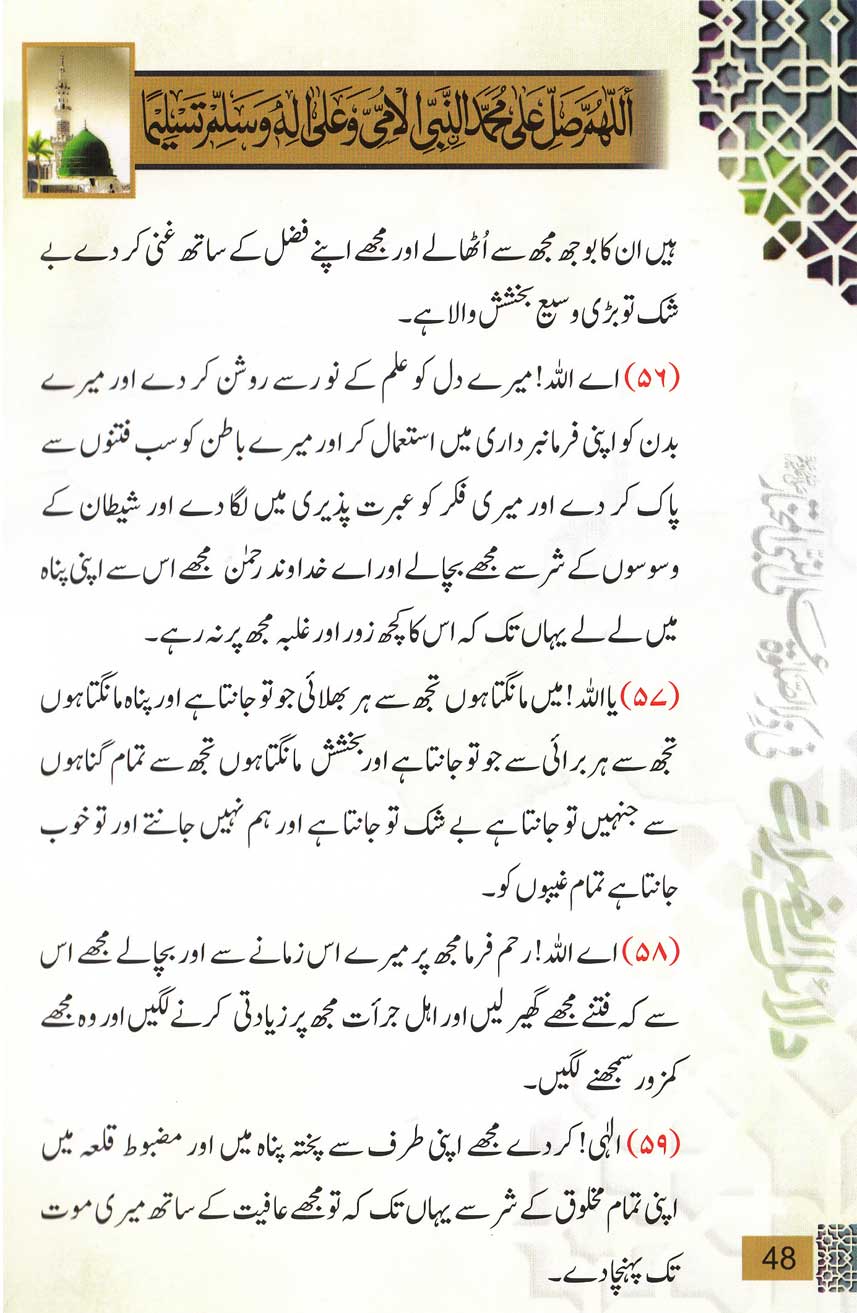 اَللّٰهُمَّ صَلِّ عَلٰى مُحَمَّدِ النَّبِىِّ الْاُمِّىِّ وَعَلٰى اٰلِهٖ وَسَلِّمْ تَسْلِيْمًا
ہیں ان کا بوجھ مجھ سے اُٹھالے اور مجھے اپنے فضل کے ساتھ غنی کر دے بے
شک تو بڑی وسیع بخشش والا ہے۔
(۵۶) اے اللہ! میرے دل کو علم کے نور سے روشن کر دے اور میرے
بدن کو اپنی فرمانبرداری میں استعمال کر اور میرے باطن کو سب فتنوں سے
پاک کر دے اور میری فکر کو عبرت پذیری میں لگا دے اور شیطان کے
وسوسوں کے شر سے مجھے بچالے اور اے خداوند رحمٰن مجھے اس سے اپنی پناہ
میں لے لے یہاں تک کہ اس کا کچھ زور اور غلبہ مجھ پر نہ رہے۔
(۵۷) یا اللہ! میں مانگتا ہوں تجھ سے ہر بھلائی جو تو جانتا ہے اور پناہ مانگتا ہوں
تجھ سے ہر برائی سے جو تو جانتا ہے اور بخشش مانگتا ہوں تجھ سے تمام گناہوں
سے جنہیں تو جانتا ہے بے شک تو جانتا ہے اور ہم نہیں جانتے اور تو خوب
جانتا ہے تمام غیبوں کو۔
(۵۸) اے اللہ! رحم فرما مجھ پر میرے اس زمانے سے اور بچالے مجھے اس
سے کہ فتنے مجھے گھیر لیں اور اہل جرأت مجھ پر زیادتی کرنے لگیں اور وہ مجھے
کمزور سمجھنے لگیں۔
(۵۹) الٰہی! کر دے مجھے اپنی طرف سے پختہ پناہ میں اور مضبوط قلعہ میں
اپنی تمام مخلوق کے شر سے یہاں تک کہ تو مجھے عافیت کے ساتھ میری موت
تک پہنچا دے۔
دلائل الخیرات
48